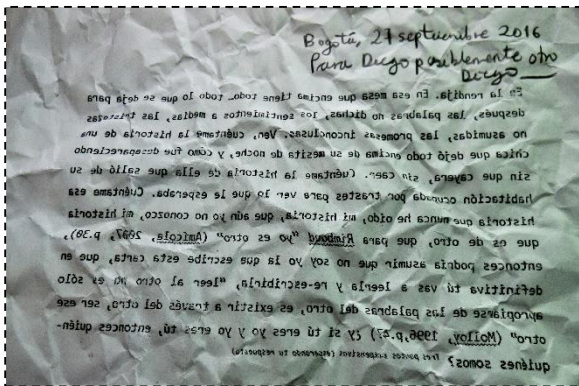 Bogotá, 27 septiembre 2016
Para Diego posiblemente otro
Diego
En la rendija. En esa mesa que encima tiene todo… todo lo que se deja para
después, las palabras no dichas, los sentimientos a medias, las tristezas
no asumidas, las promesas inconclusas. Ven, cuéntame la historia de una
chica que dejó todo encima de su mesita de noche, y cómo fue desapareciendo
sin que cayera, sin caer. Cuéntame la historia de ella que salió de su
habitación ocupada por trastes para ver lo que le esperaba. Cuéntame esa
historia que nunca he oído, mi historia, que aún yo no conozco, mi historia
que es de otro, que para Rimbaud "yo es otro" (Amícola, 2007, p.30),
entonces podría asumir que no soy yo la que escribe esta carta, que en
definitiva tú vas a leerla y re-escribirla, "leer al otro no es sólo
apropiarse de las palabras del otro, es existir a través del otro, ser ese
otro" (Molloy, 1996,p.27) ¿y si tú eres yo y yo eres tú, entonces quién-
quiénes somos? Tres puntos suspensivos (esperando tu respuesta)